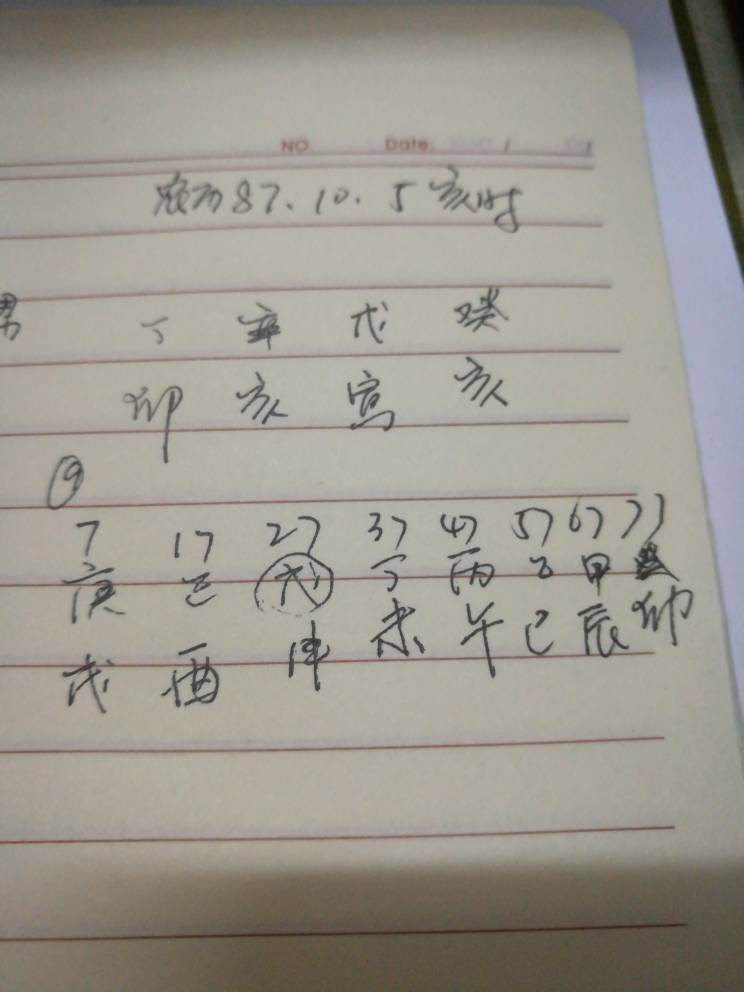 NO. Date: /
农历87.10.5亥时
男 丁 辛 戊 癸
卯 亥 寅 亥
9
7 17 27 37 47 57 67 77
庚 己 戊 丁 丙 乙 甲
戌 酉 申 未 午 巳 辰 卯